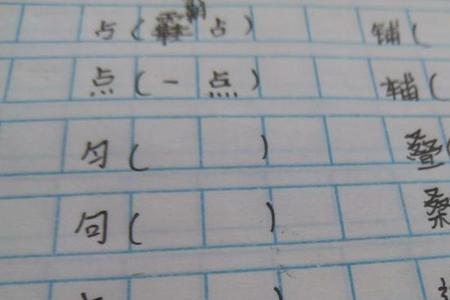 占( 占) 铺(
点(一点) 辅(
匀( ) 叠(
句( ) 桑